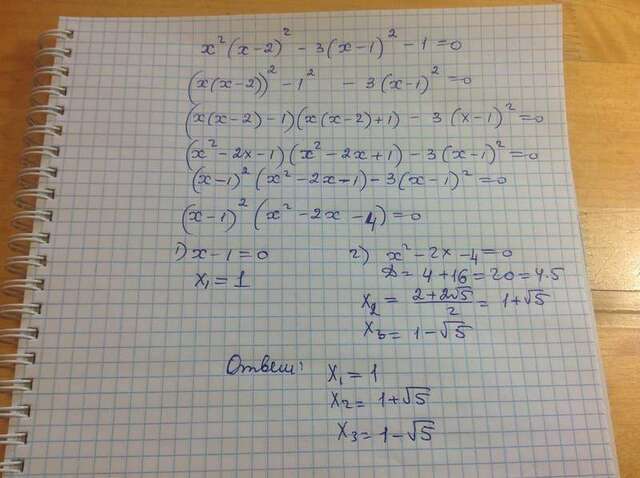 x²(x-2)² - 3(x-1)² - 1 = 0
(x(x-2))² - 1² - 3(x-1)² = 0
(x(x-2)-1)(x(x-2)+1) - 3(x-1)² = 0
(x²-2x-1)(x²-2x+1) - 3(x-1)² = 0
(x-1)²(x²-2x-1) - 3(x-1)² = 0
(x-1)²(x²-2x-4) = 0
1) x-1=0 2) x²-2x-4=0
x₁=1 D=4+16=20=4·5
x₂ = (2+2√5)/2 = 1+√5
x₃ = 1-√5
Ответ: x₁=1
x₂=1+√5
x₃=1-√5